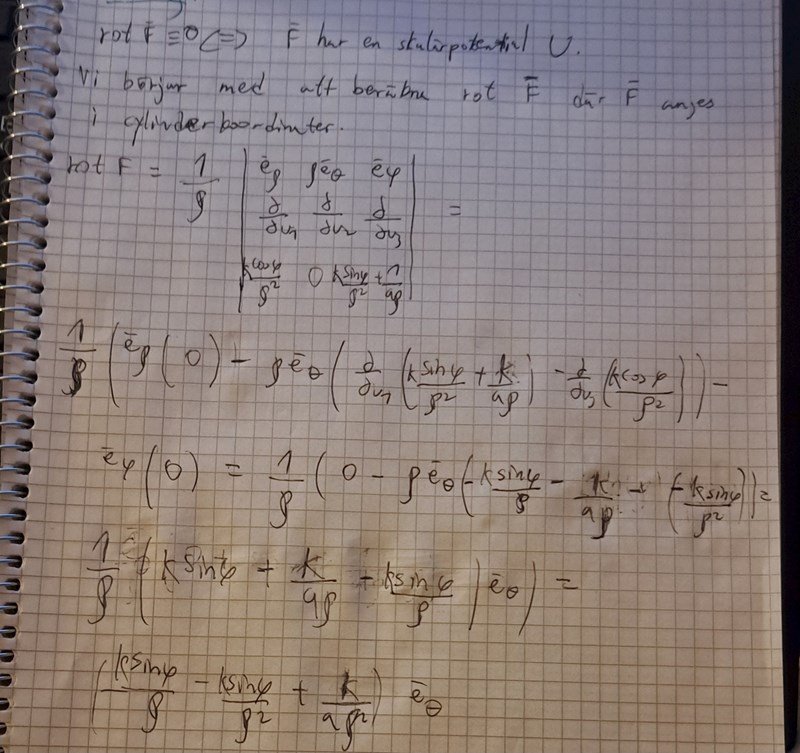 rot F̄ ≡ 0 <=> F̄ har en skalärpotential U.
Vi börjar med att beräkna rot F̄ där F̄ anges
i cylinderkoordinater.
rot F = 1/ρ | ē_ρ ρē_θ ē_φ |
| ∂/∂u₁ ∂/∂u₂ ∂/∂u₃ | =
| kcosφ/ρ² 0 ksinφ/ρ² + 1/aρ |
1/ρ ( ē_ρ (0) - ρē_θ ( ∂/∂u₁ ( ksinφ/ρ² + k/aρ ) - ∂/∂u₃ ( kcosφ/ρ² ) ) -
ē_φ (0) = 1/ρ ( 0 - ρē_θ ( -ksinφ/ρ - k/aρ - ( -ksinφ/ρ² ) ) =
1/ρ ( ksinφ + k/aρ + ksinφ/ρ ) ē_θ ) =
( ksinφ/ρ - ksinφ/ρ² + k/aρ² ) ē_θ